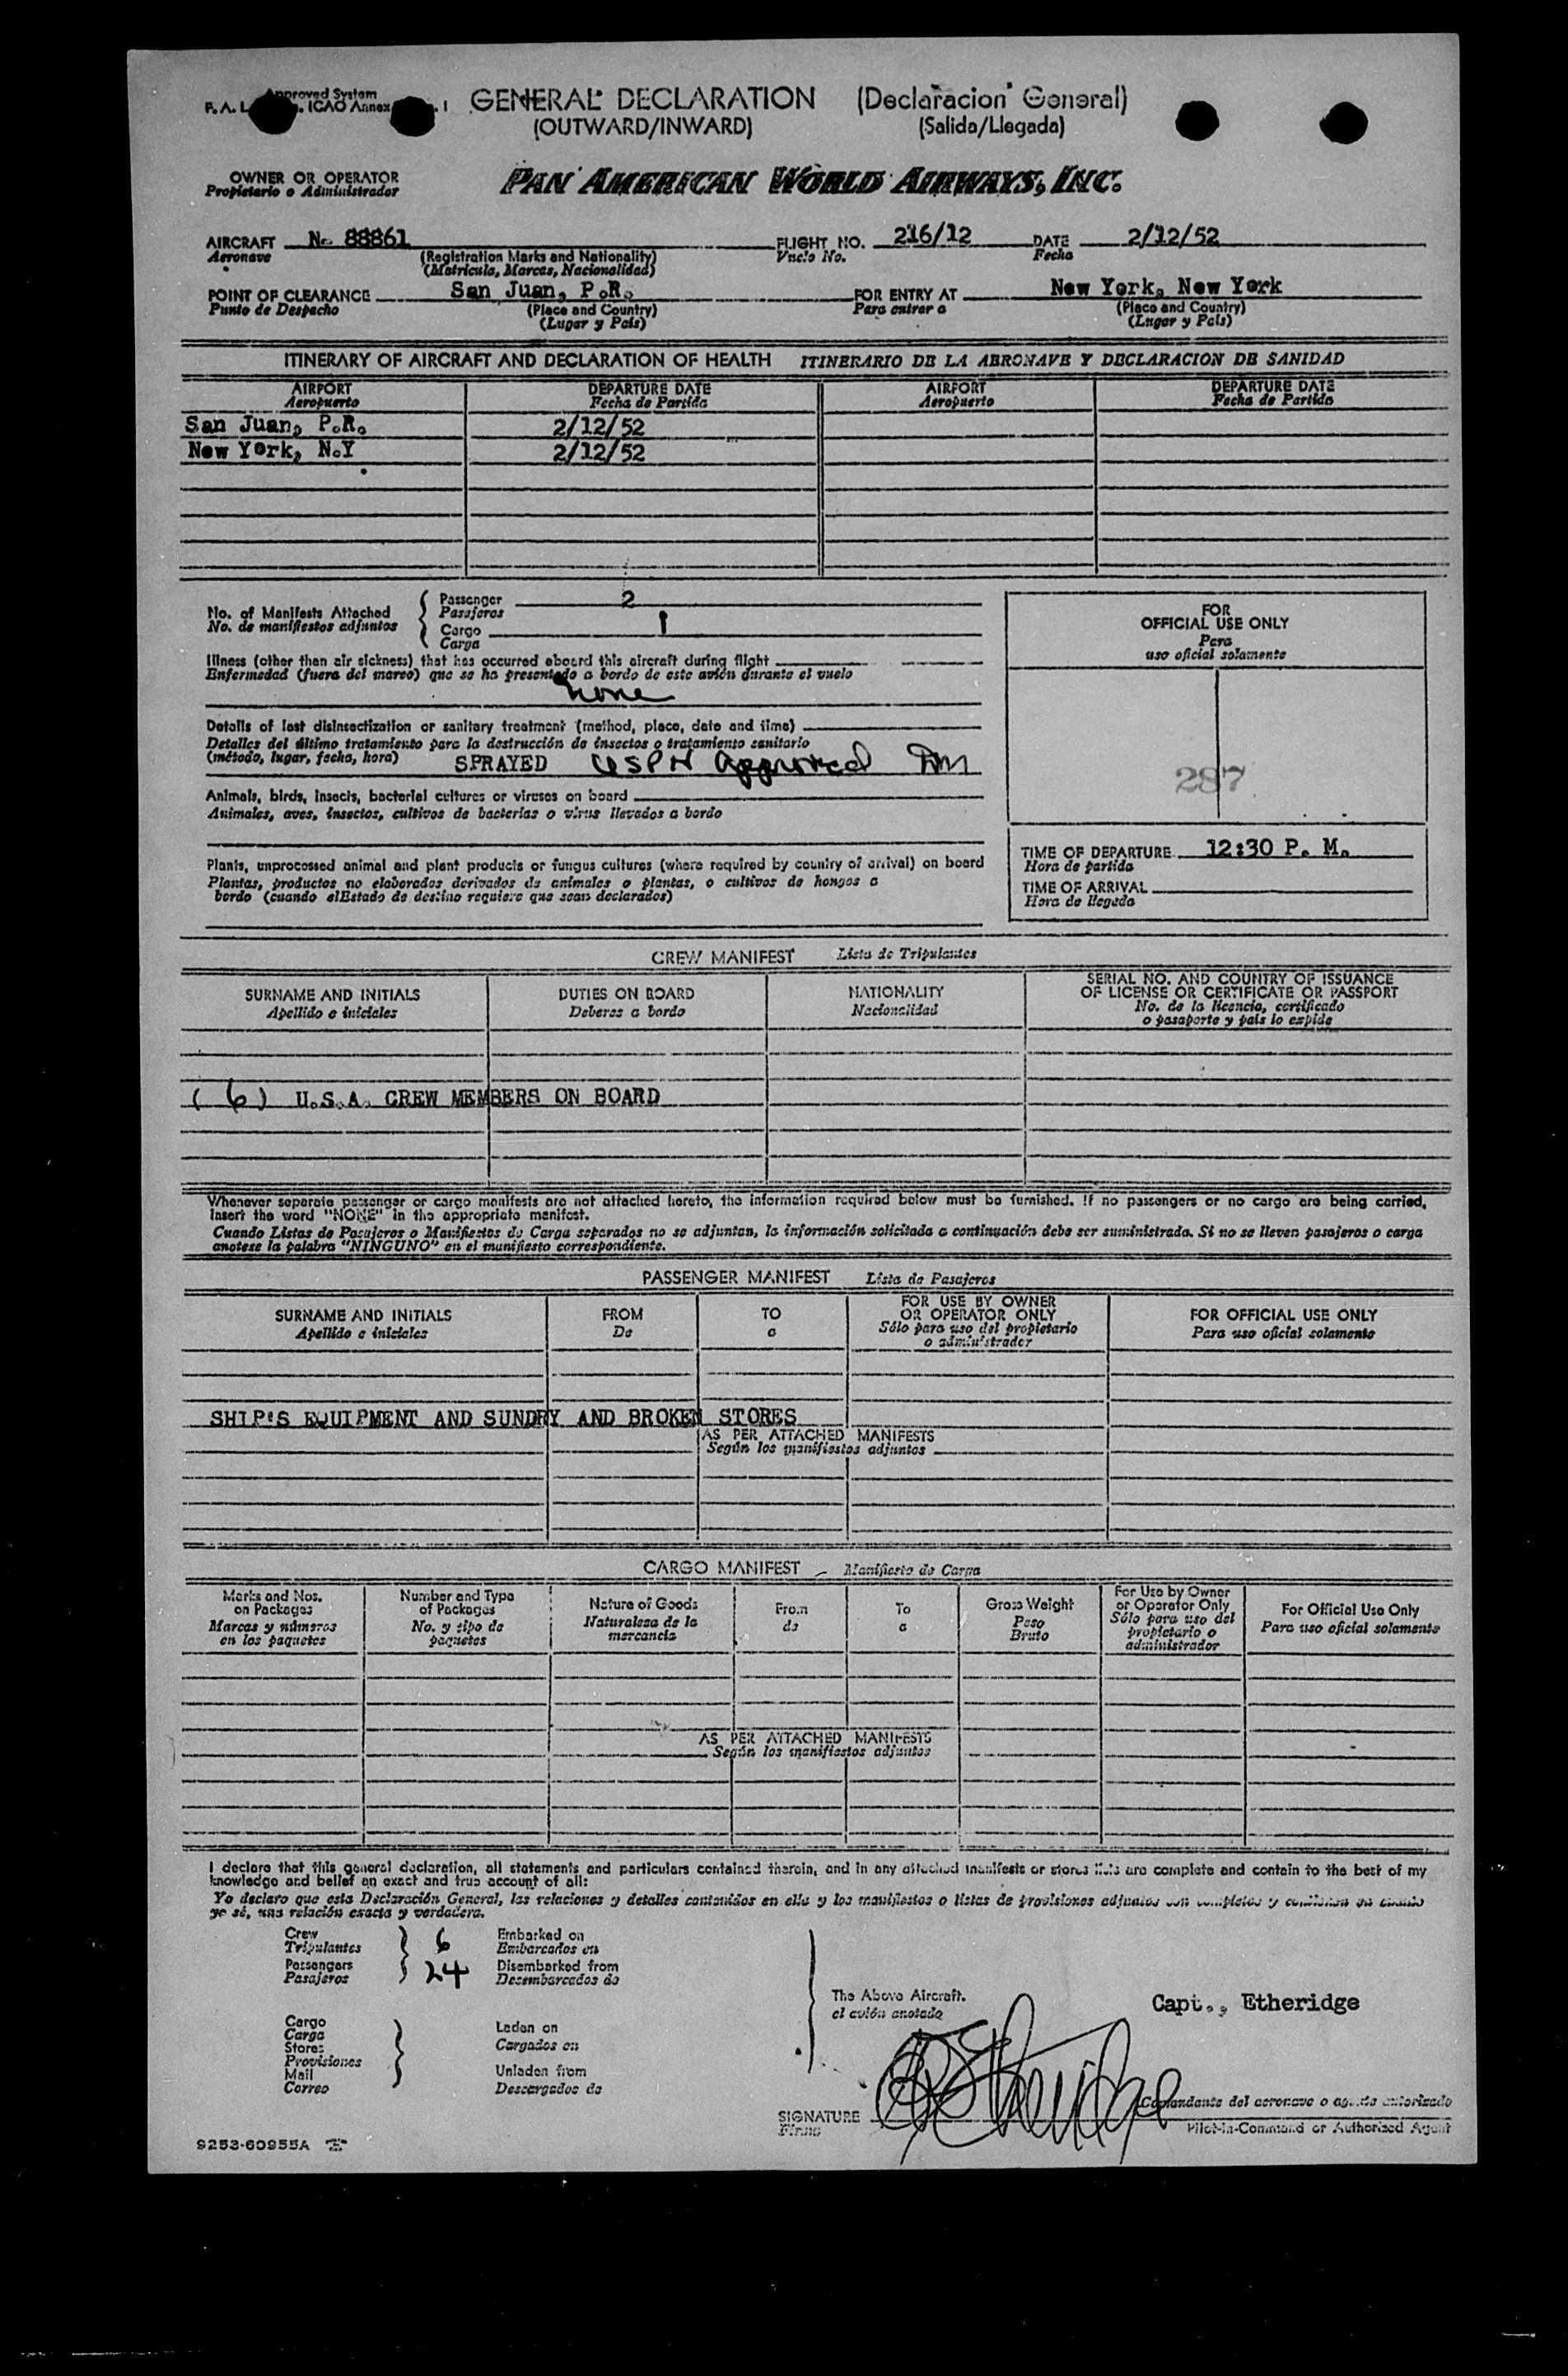 Approved System
F. A. L. ICAO Annex I
GENERAL DECLARATION (Declaracion General)
(OUTWARD/INWARD) (Salida/Llegada)
OWNER OR OPERATOR
Propietario o Administrador
PAN AMERICAN WORLD AIRWAYS, INC.
AIRCRAFT N- 88861 FLIGHT NO. 216/12 DATE 2/12/52
Aeronave (Registration Marks and Nationality) Vuelo No. Fecha
(Matricula, Marcas, Nacionalidad)
POINT OF CLEARANCE San Juan, P.R. FOR ENTRY AT New York, New York
Punto de Despacho (Place and Country) Para entrar a (Place and Country)
(Lugar y País) (Lugar y País)
ITINERARY OF AIRCRAFT AND DECLARATION OF HEALTH ITINERARIO DE LA AERONAVE Y DECLARACION DE SANIDAD
AIRPORT DEPARTURE DATE AIRPORT DEPARTURE DATE
Aeropuerto Fecha de Partida Aeropuerto Fecha de Partida
San Juan, P.R. 2/12/52
New York, N.Y 2/12/52
No. of Manifests Attached
No. de manifiestos adjuntos
Passenger 2
Pasajeros
Cargo 1
Carga
FOR
OFFICIAL USE ONLY
Para
uso oficial solamente
Illness (other than air sickness) that has occurred aboard this aircraft during flight
Enfermedad (fuera del mareo) que se ha presentado a bordo de este avión durante el vuelo
none
Details of last disinsectization or sanitary treatment (method, place, date and time)
Detalles del último tratamiento para la destrucción de insectos o tratamiento sanitario
(método, lugar, fecha, hora) SPRAYED USPH Approved
287
Animals, birds, insects, bacterial cultures or viruses on board
Animales, aves, insectos, cultivos de bacterias o virus llevados a bordo
Plants, unprocessed animal and plant products or fungus cultures (where required by country of arrival) on board
Plantas, productos no elaborados derivados de animales o plantas, o cultivos de hongos a
bordo (cuando elEstado de destino requiere que sean declarados)
TIME OF DEPARTURE 12:30 P. M.
Hora de partida
TIME OF ARRIVAL
Hora de llegada
CREW MANIFEST Lista de Tripulantes
SURNAME AND INITIALS DUTIES ON BOARD NATIONALITY SERIAL NO. AND COUNTRY OF ISSUANCE
OF LICENSE OR CERTIFICATE OR PASSPORT
Apellido e iniciales Deberes a bordo Nacionalidad No. de la licencia, certificado
o pasaporte y país lo expide
( 6 ) U.S.A. CREW MEMBERS ON BOARD
Whenever separate passenger or cargo manifests are not attached hereto, the information required below must be furnished. If no passengers or no cargo are being carried,
insert the word "NONE" in the appropriate manifest.
Cuando Listas de Pasajeros o Manifiestos de Carga separados no se adjuntan, la información solicitada a continuación debe ser suministrada. Si no se lleven pasajeros o carga
anotese la palabra "NINGUNO" en el munifiesto correspondiente.
PASSENGER MANIFEST Lista de Pasajeros
SURNAME AND INITIALS FROM TO FOR USE BY OWNER
OR OPERATOR ONLY FOR OFFICIAL USE ONLY
Apellido e iniciales De a Sólo para uso del propietario
o administrador Para uso oficial solamente
SHIP'S EQUIPMENT AND SUNDRY AND BROKEN STORES
AS PER ATTACHED MANIFESTS
Según los manifiestos adjuntos
CARGO MANIFEST Manifiesto de Carga
Marks and Nos.
on Packages
Marcas y números
en los paquetes
Number and Type
of Packages
No. y tipo de
paquetes
Nature of Goods
Naturaleza de la
mercancía
From
de
To
a
Gross Weight
Peso
Bruto
For Use by Owner
or Operator Only
Sólo para uso del
propietario o
administrador
For Official Use Only
Para uso oficial solamente
AS PER ATTACHED MANIFESTS
Según los manifiestos adjuntos
I declare that this general declaration, all statements and particulars contained therein, and in any attached manifests or stores lists are complete and contain to the best of my
knowledge and belief an exact and true account of all:
Yo declaro que esta Declaración General, las relaciones y detalles contenidos en ella y los manifiestos o listas de provisiones adjuntos son completos y contienen en cuanto
yo sé, una relación exacta y verdadera.
Crew 6 Embarked on
Tripulantes Embarcados en
Passengers 24 Disembarked from
Pasajeros Desembarcados de
The Above Aircraft.
el avión anotado
Capt., Etheridge
Cargo
Carga
Stores
Provisiones
Mail
Correo
Laden on
Cargados en
Unladen from
Descargados de
SIGNATURE Etheridge
Firma
Comandante del aeronave o agente autorizado
Pilot-in-Command or Authorized Agent
9253-60955A